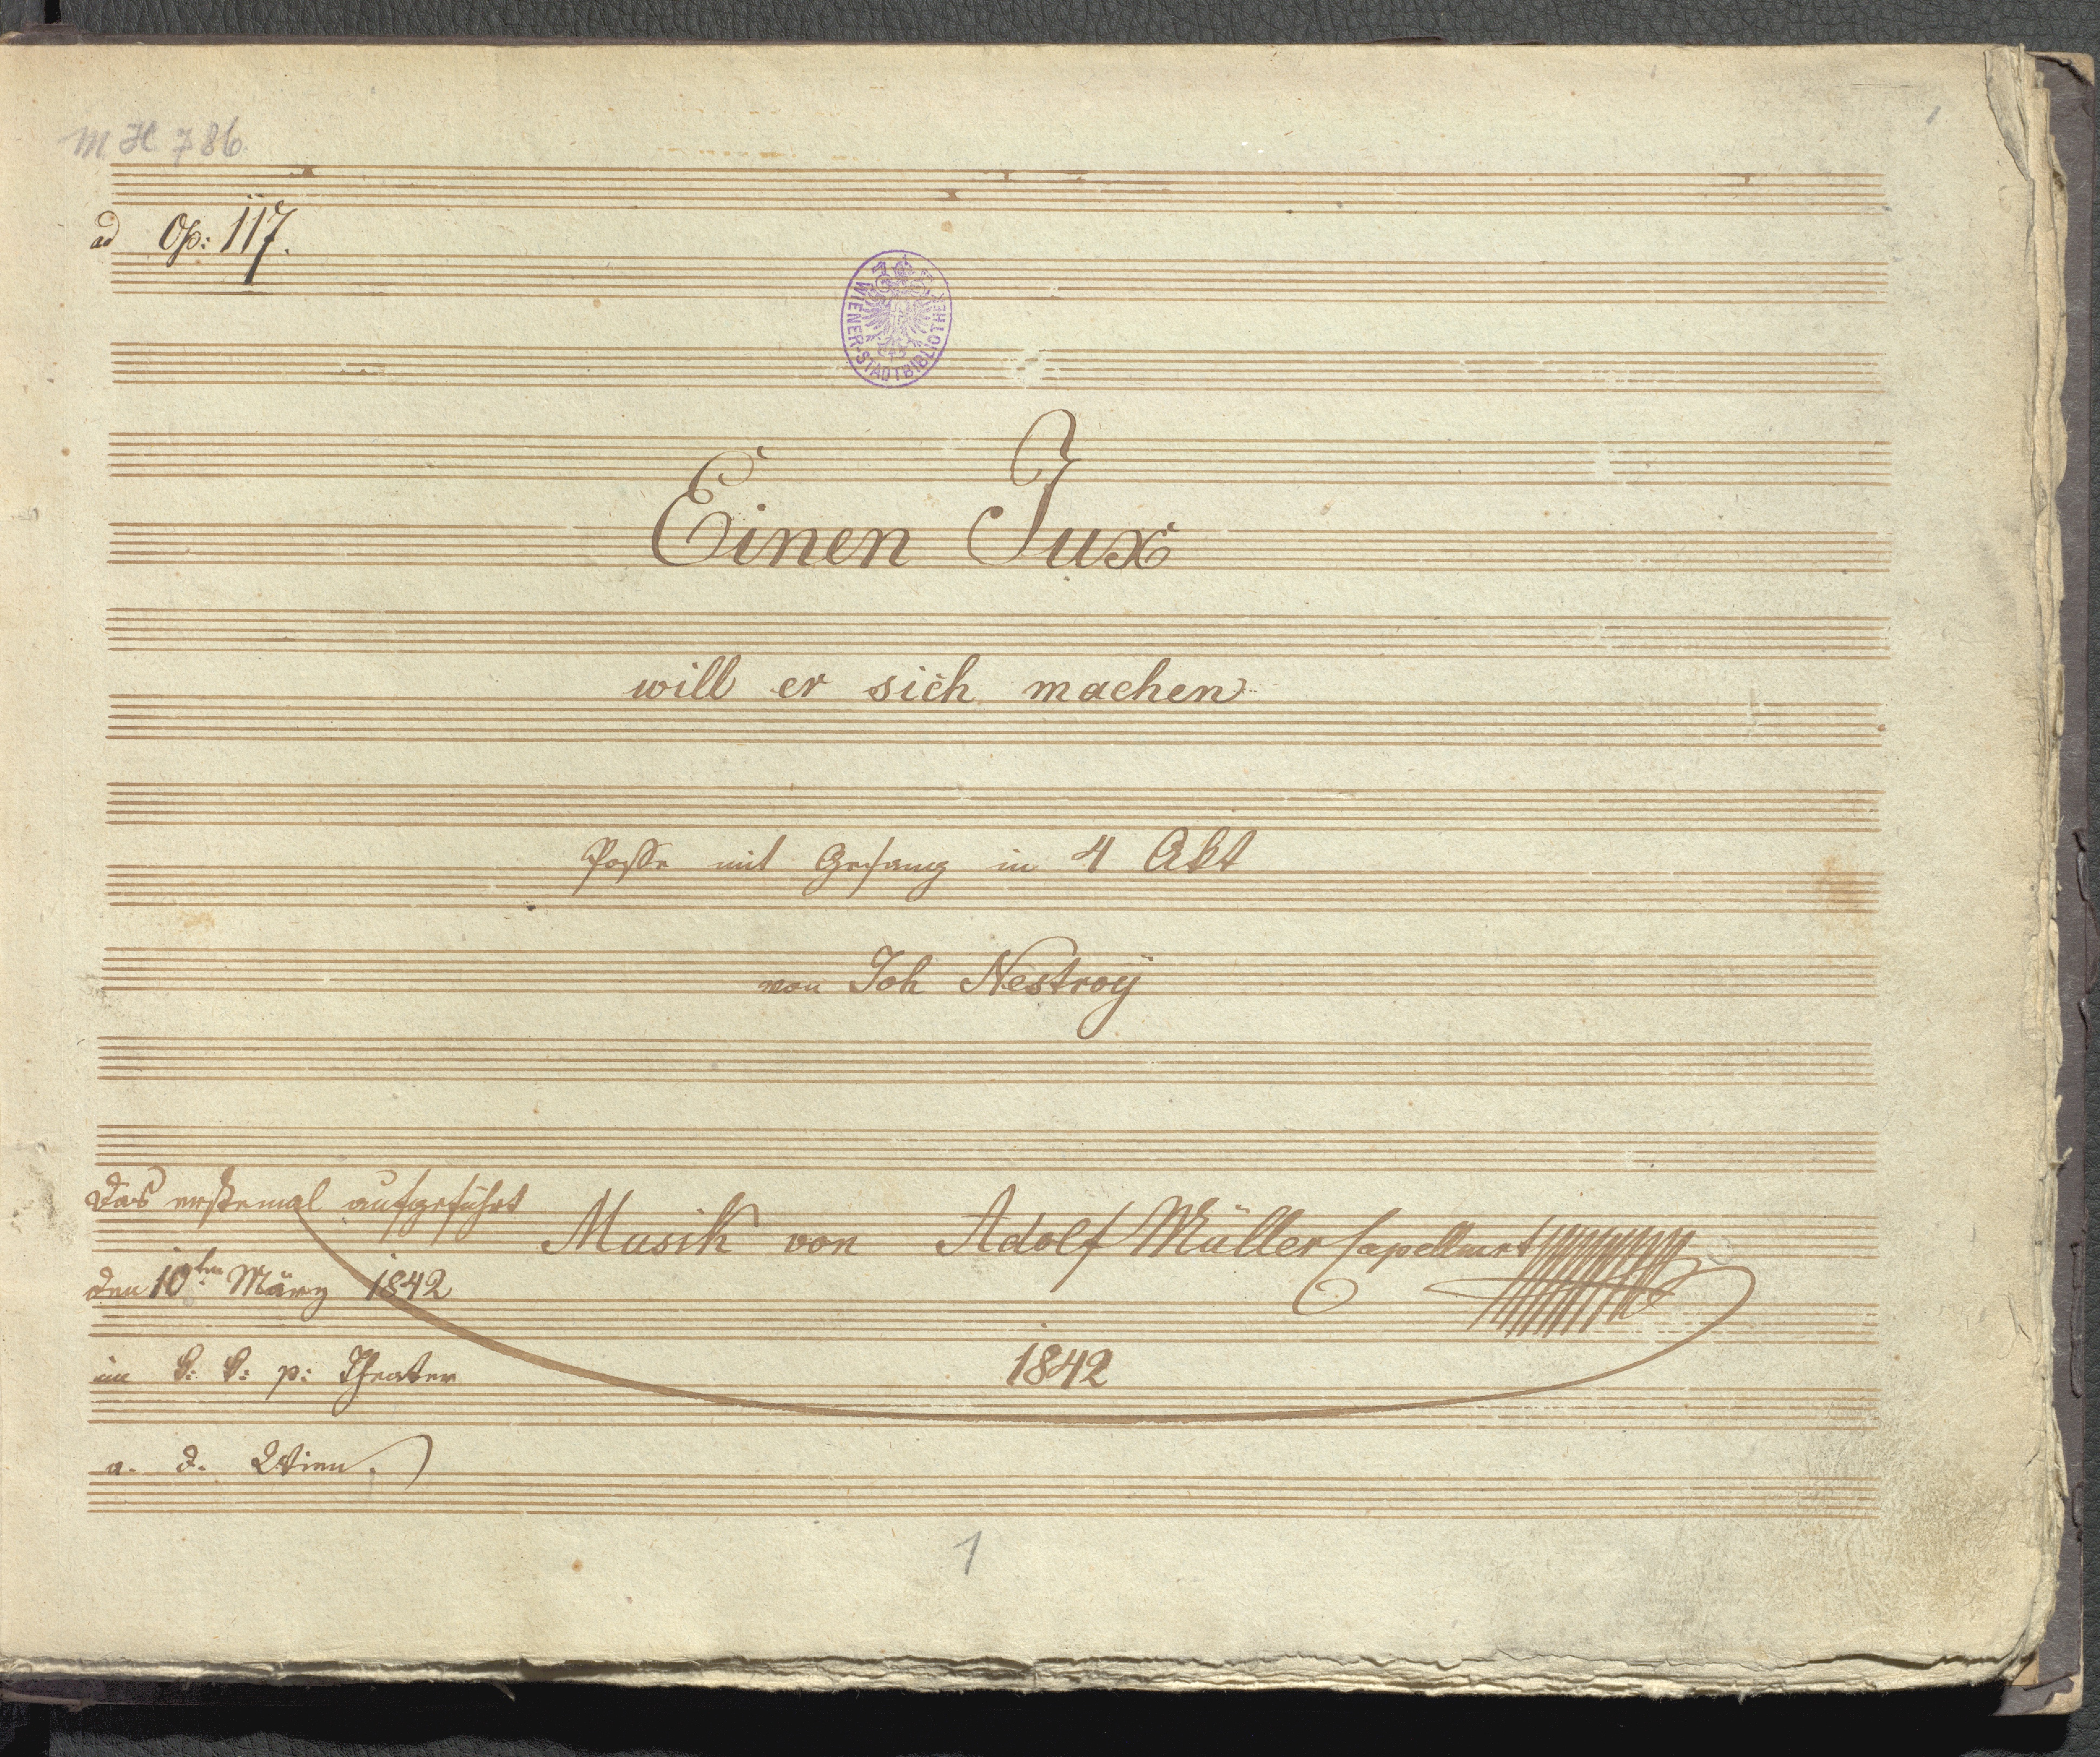 M H 786
1
ad Op: 117.
WIENER-STADTBIBLIOTHEK
Einen Jux
will er sich machen
Posse mit Gesang in 4 Akt
von Joh Nestroy
Das erstemal aufgeführt
Musik von Adolf Müller Capellmst
den 10ten März 1842
1842
im k: k: p: Theater
a. d. Wien.
1